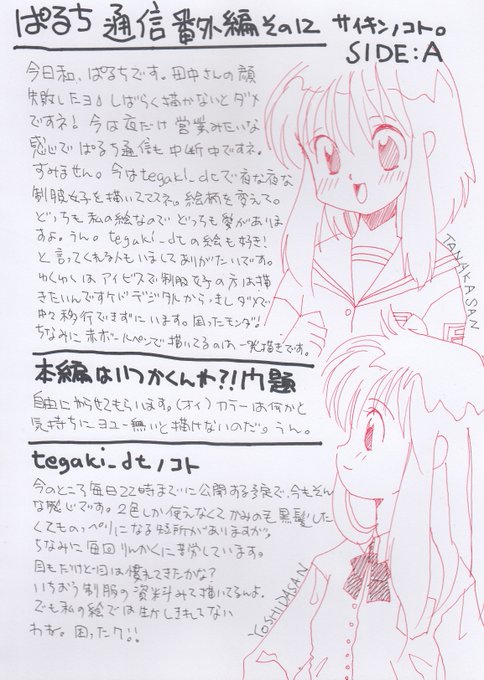 ぱるち通信番外編その12 サイキンノコト。
SIDE:A
今日和、ぱるちです。田中さんの顔
失敗したヨ♪しばらく描かないとダメ
ですネ!今は夜だけ営業みたいな
感じでぱるち通信も中断中ですネ。
すみません。今はtegaki_dtで夜な夜な
制服女子を描いてマスネ。絵柄を変えて。
どっちも私の絵なのでどっちも愛がありま
すよ。うん。tegaki_dtの絵も好き!
と言ってくれる人もいましてありがたいです。
ゆくゆくはアイビスで制服女子の方は描
きたいんですけどデジタルからっきしダメで
中々移行できずにいます。困ったモンダ!
ちなみに赤ボールペンで描いてるのは一発描きです。
TANAKASAN
本編はいつかくんね?!ウ題
自由にかかせてもらいます。(オイ)カラーは何かと
気持ちにヨユー無いと描けないのだ。うん。
tegaki_dtノコト
今のところ毎日22時までに公開する予定で、今もそん
な感じです。2色しか使えなくてかみのも黒髪した
くてものっぺりになる短所がありますが。
ちなみに毎回りんかくに苦労しています。
目もだけど目は慣れてきたかな?
いちおう制服の資料みて描いてるんよ。
でも私の絵では生かしきれてない
わね。困ったワ!!
YOSHIDASAN